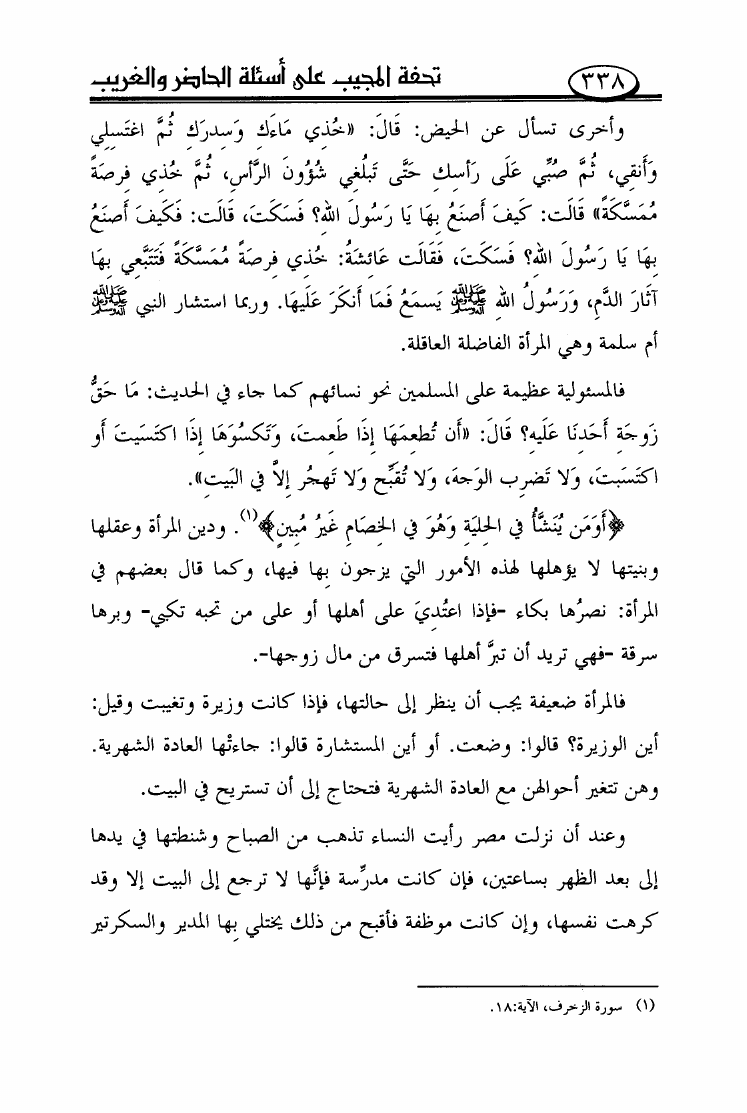 ٣٣٨ تحفة المجيب على أسئلة الحاضر والغريب
وأخرى تسأل عن الحيض: قَالَ: «خُذي مَاءَكِ وَسِدرَكِ ثُمَّ اغتَسِلِي
وَأَنقِي، ثُمَّ صُبِّي عَلَى رَأسِكِ حَتَّى تَبلُغِي شُؤُونَ الرَّأسِ، ثُمَّ خُذِي فِرصَةً
مُمَسَّكَةً» قَالَت: كَيفَ أَصنَعُ بِهَا يَا رَسُولَ اللهِ؟ فَسَكَتَ، قَالَت: فَكَيفَ أَصنَعُ
بِهَا يَا رَسُولَ اللهِ؟ فَسَكَتَ، فَقَالَت عَائِشَةُ: خُذِي فِرصَةً مُمَسَّكَةً فَتَتَبَّعِي بِهَا
آثَارَ الدَّمِ، وَرَسُولُ اللهِ ﷺ يَسمَعُ فَمَا أَنكَرَ عَلَيهَا. وربما استشار النبي ﷺ
أم سلمة وهي المرأة الفاضلة العاقلة.
فالمسئولية عظيمة على المسلمين نحو نسائهم كما جاء في الحديث: مَا حَقُّ
زَوجَةِ أَحَدِنَا عَلَيهِ؟ قَالَ: «أَن تُطعِمَهَا إِذَا طَعِمتَ، وَتَكسُوَهَا إِذَا اكتَسَيتَ أَو
اكتَسَبتَ، وَلَا تَضرِبِ الوَجهَ، وَلَا تُقَبِّح وَلَا تَهجُر إِلاَّ فِي البَيتِ».
﴿أَوَمَن يُنَشَّأُ فِي الحِليَةِ وَهُوَ فِي الخِصَامِ غَيرُ مُبِينٍ﴾(١). ودين المرأة وعقلها
وبنيتها لا يؤهلها لهذه الأمور التي يزجون بها فيها، وكما قال بعضهم في
المرأة: نصرُها بكاء -فإذا اعتُديَ على أهلها أو على من تحبه تبكي- وبرها
سرقة -فهي تريد أن تبرَّ أهلها فتسرق من مال زوجها-.
فالمرأة ضعيفة يجب أن ينظر إلى حالتها، فإذا كانت وزيرة وتغيبت وقيل:
أين الوزيرة؟ قالوا: وضعت. أو أين المستشارة قالوا: جاءتْها العادة الشهرية.
وهن تتغير أحوالهن مع العادة الشهرية فتحتاج إلى أن تستريح في البيت.
وعند أن نزلت مصر رأيت النساء تذهب من الصباح وشنطتها في يدها
إلى بعد الظهر بساعتين، فإن كانت مدرِّسة فإنَّها لا ترجع إلى البيت إلا وقد
كرهت نفسها، وإن كانت موظفة فأقبح من ذلك يختلي بِها المدير والسكرتير
(١) سورة الزخرف، الآية:١٨.